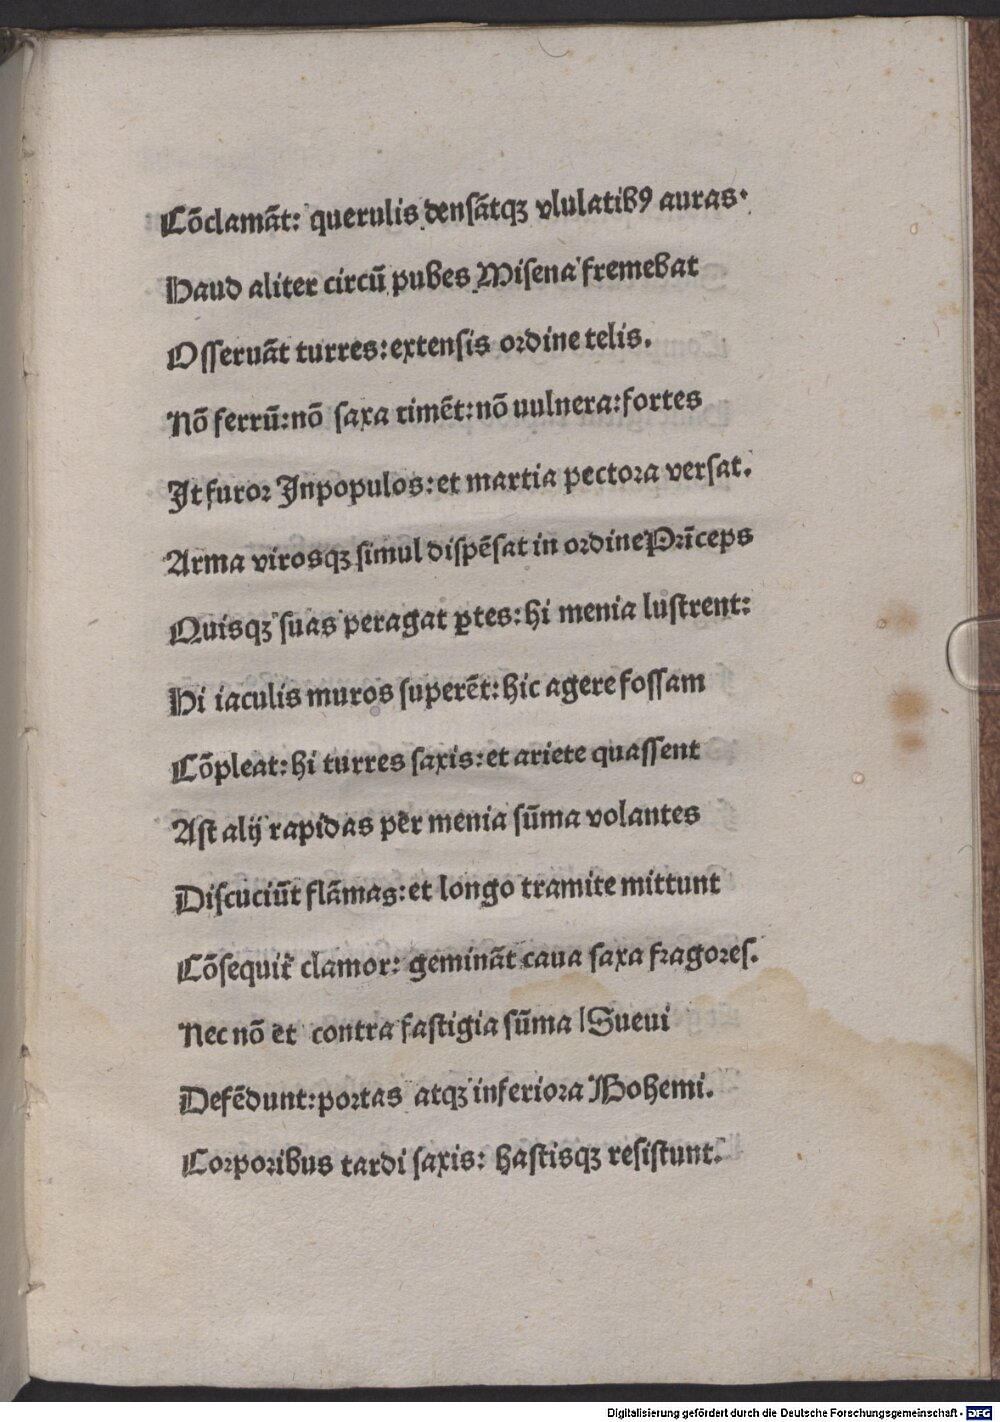 Cõclamãt: querulis densãtqꝫ vlulatibꝰ auras.
Haud aliter circũ pubes Misena fremebat
Osseruãt turres: extensis ordine telis.
Nõ ferrũ: nõ saxa timẽt: nõ uulnera: fortes
It furor Inpopulos: et martia pectora versat.
Arma virosqꝫ simul dispẽsat in ordine Prĩceps
Quisqꝫ suas peragat ꝑtes: hi menia lustrent:
Hi iaculis muros superẽt: hic agere fossam
Cõpleat: hi turres saxis: et ariete quassent
Ast alij rapidas per menia sũma volantes
Discuciũt flãmas: et longo tramite mittunt
Cõsequit᷑ clamor: geminãt caua saxa fragores.
Nec nõ et contra fastigia sũma Sueui
Defẽdunt: portas atqꝫ inferiora Bohemi.
Corporibus tardi saxis: hastisqꝫ resistunt.
Digitalisierung gefördert durch die Deutsche Forschungsgemeinschaft - DFG